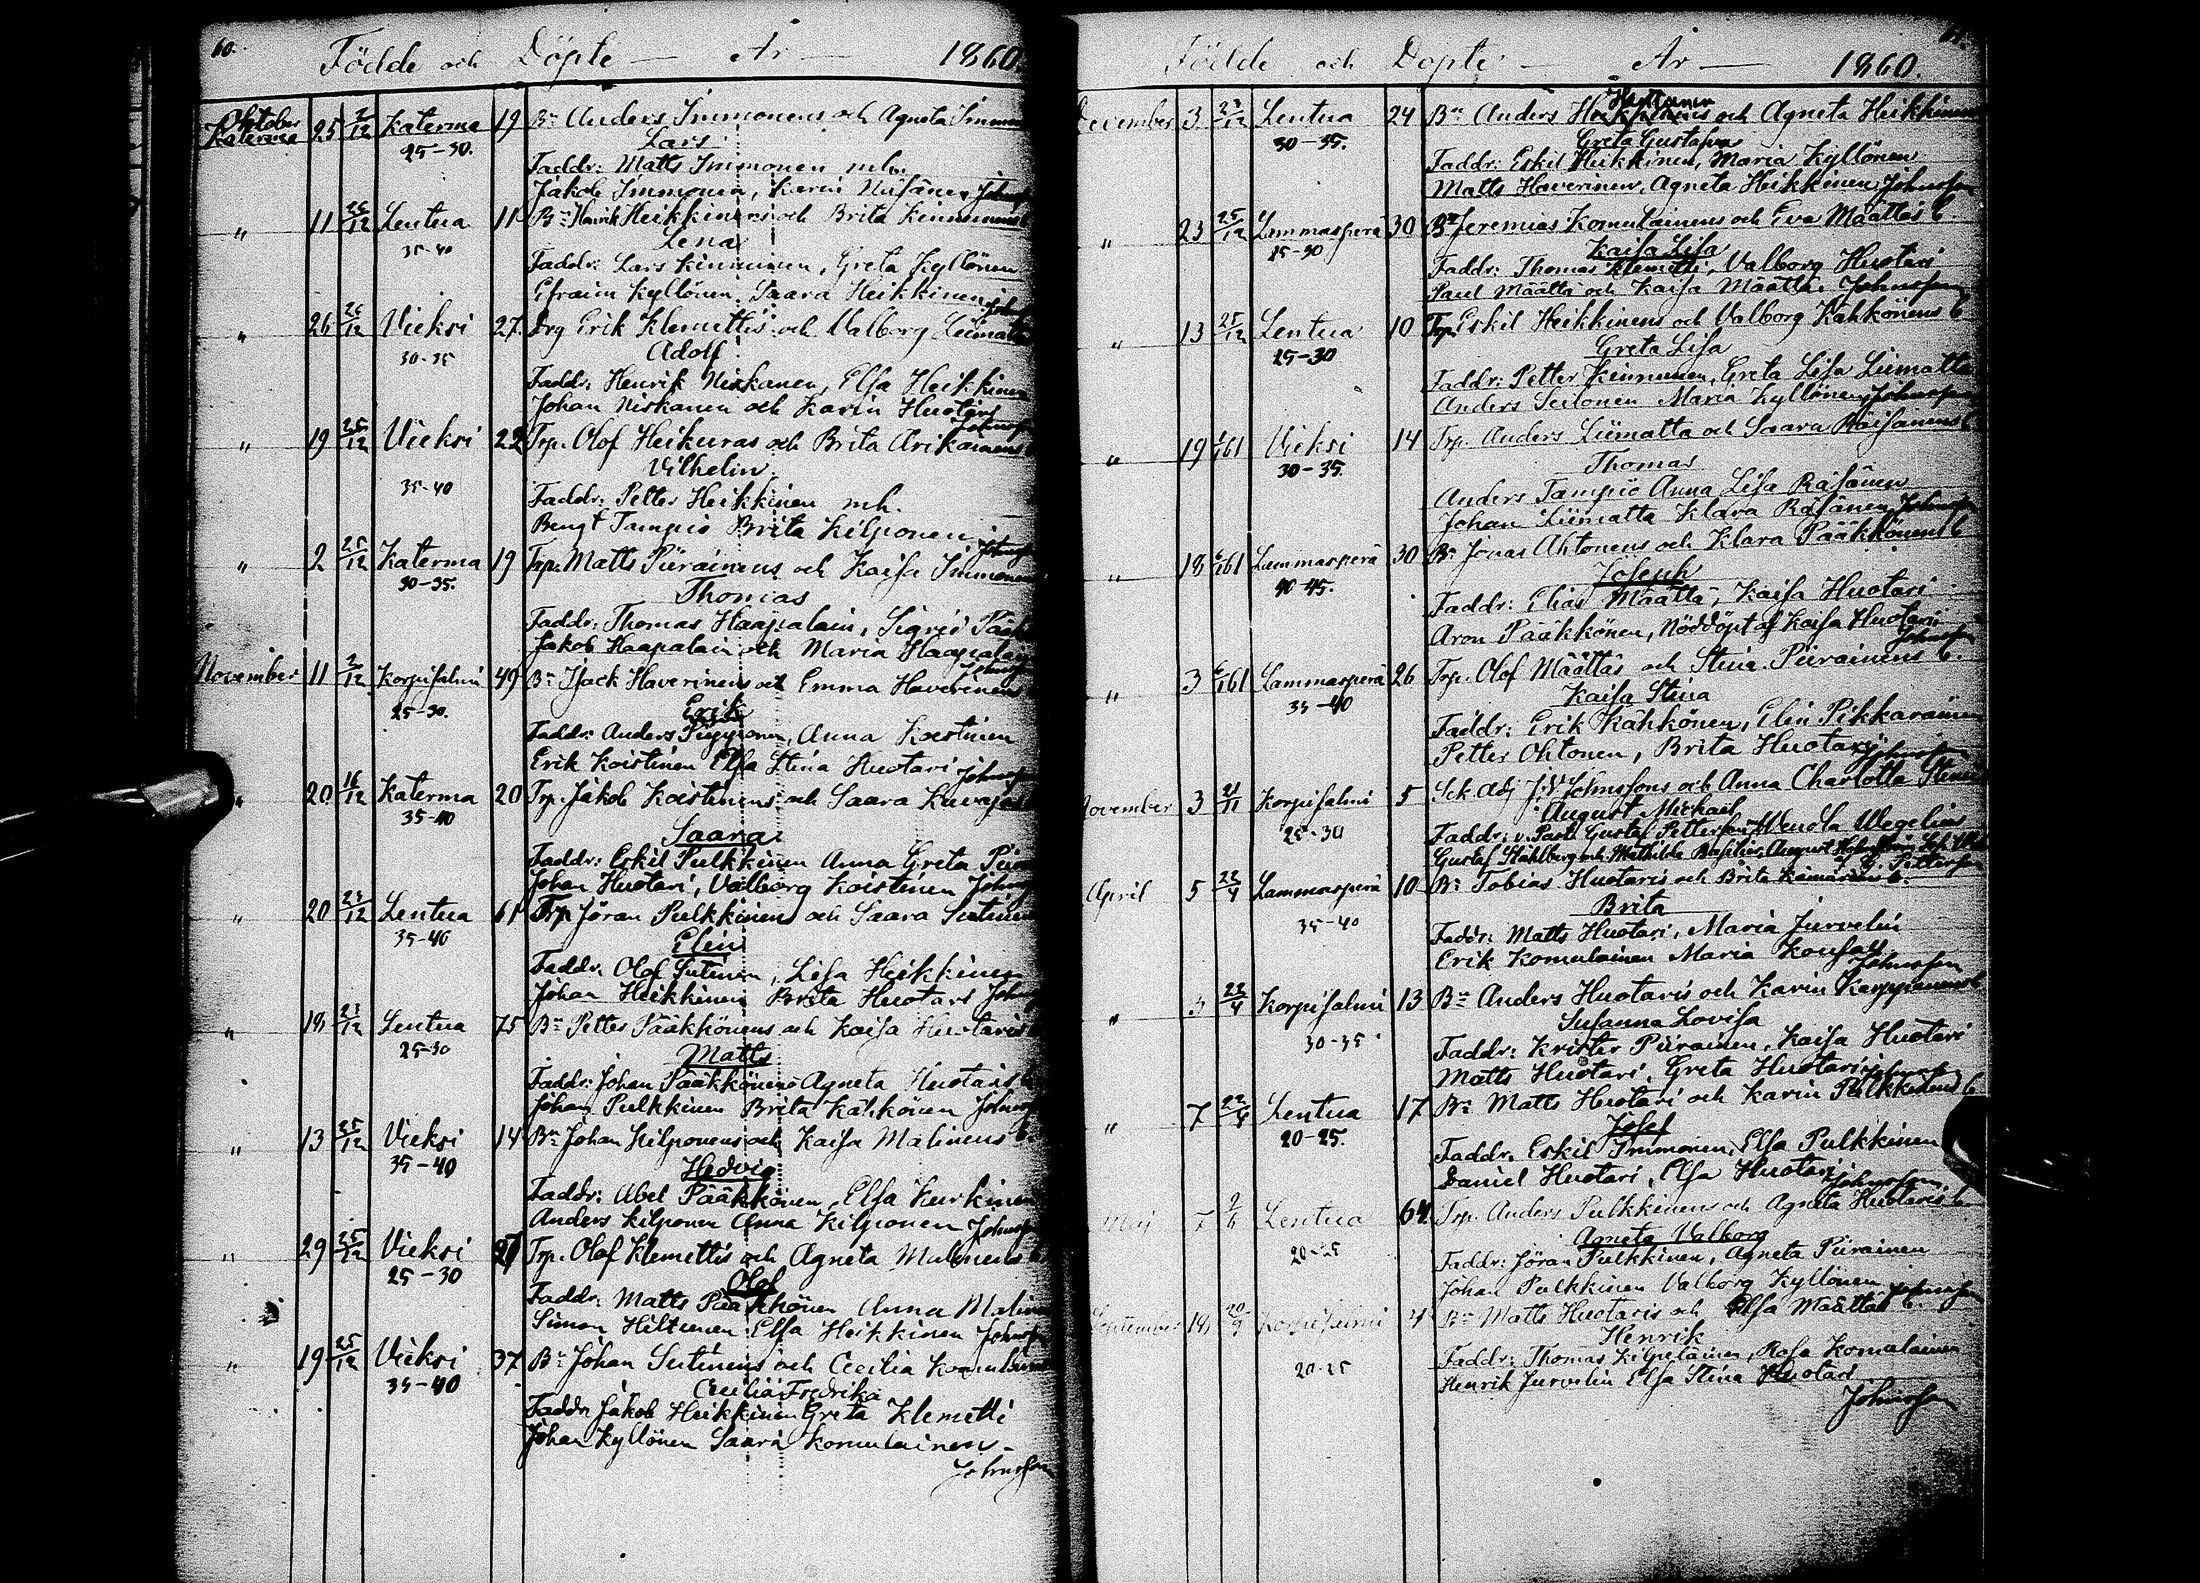 60.
Födde och Döpte — År — 1860.
Oktober
Katerma 25 2/12 Katerma 19 Bn Anders Immonens och Agneta
25-30. Lars
Faddr: Matts Immonen mh.
Jakob Immonen, Karin
" 11 25/12 Lentua 11 Bn Henrik Heikkinens och Brita Kinnunens
35-40 Lena
Faddr: Lars Kinnunen, Greta Kyllönen
Efraim Kyllönen Saara Heikkinen
" 26 26/12 Vieksi 27 Drg Erik Klemettis och Valborg
30-35 Adolf
Faddr: Henrik Niskanen, Elsa Heikkinen
Johan Niskanen och Karin Huotari
" 19 25/12 Vieksi 22 Trp. Olof Heikuras och Brita Arikainens
35-40 Vilhelm
Faddr: Petter Heikkinen mh.
Bengt Tampio Brita Kilponen
" 2 25/12 Katerma 19 Trp. Matts Piirainens och Kaisa Immonens
30-35. Thomas
Faddr: Thomas Haapalain, Sigrid
Jakob Haapalain och Maria Haapalain
November 11 2/12 Korpisalmi 49 Bn Isack Haverinens och Emma Haverinens
25-30. Erik
Faddr: Anders Piipponen, Anna Koistinen
Erik Koistinen Elsa Stina Huotari Johnsson
" 20 16/12 Katerma 20 Trp. Jakob Koistinens och Saara
35-40 Saara
Faddr: Eskil Pulkkinen Anna Greta
Johan Huotari, Valborg Koistinen
" 20 23/12 Lentua 61 Trp. Jöran Pulkkinens och Saara
35-40 Elin
Faddr. Olof Sutinen, Lisa Heikkinen
Johan Heikkinen Brita Huotari
" 18 23/12 Lentua 75 Bn Petter Pääkkönens och Kaisa Huotaris
25-30 Matts
Faddr: Johan Pääkkönens Agneta Huotaris
Johan Pulkkinen Brita Kähkönen
" 13 25/12 Vieksi 14 Bn Johan Kilponens och Kaisa Malinens b.
35-40 Hedvig
Faddr: Abel Pääkkönen, Elsa Kurkinen
Anders Kilponen Anna Kilponen Johnsson
" 29 25/12 Vieksi 27 Trp. Olof Klemettis och Agneta Malinens
25-30 Olof
Faddr: Matts Pääkkönen Anna Malinen
Simon Hiltunen Elsa Heikkinen Johnsson
" 19 25/12 Vieksi 37 Bn Johan Sutinens och Cecilia
35-40 Cecilia Fredrika
Faddr Jakob Heikkinen Greta Klemetti
Johan Kyllönen Saara Komulainen
Johnsson
61.
Födde och Döpte — År — 1860.
December 3 Lentua 24 Bn Anders och Agneta Heikkinens
30-35. Greta Gustafva
Faddr: Eskil Heikkinen, Maria Kyllönen
Matts Haverinen, Agneta Heikkinen, Johnsson
" 23 25/12 Lammasperä 30 Bn Jeremias Komulainens och Eva Määttäs b.
25-30 Kaisa Lisa
Faddr: Thomas Klemetti, Valborg Huotari
Paul Määttä och Kaisa Määttä. Johnsson
" 13 25/12 Lentua 10 Trp. Eskil Heikkinens och Valborg Kähkönens b
25-30 Greta Lisa
Faddr: Petter Kinnunen, Greta Lisa Liimatta
Anders Maria Kyllönen, Johnsson
" 19 1/1 61 Vieksi 14 Trp. Anders Liimatta och Saara Räisänens b
30-35. Thomas
Anders Tampio Anna Lisa Räisänen
Johan Liimatta Klara Räisänen Johnsson
" 18 6/1 61 Lammasperä 30 Bn Jonas Ohtonens och Klara Pääkkönens b
40-45. Joseph
Faddr: Elias Määttä, Kaisa Huotari
Aron Pääkkönen, Nöddöpt af Kaisa Huotari
Johnsson
" 3 6/1 61 Lammasperä 26 Trp. Olof Määttäs och Stina Piirainens b.
35-40 Kaisa Stina
Faddr: Erik Kähkönen, Elin Pikkarainen
Petter Ohtonen, Brita Huotari Johnsson
November 3 21/11 Korpisalmi 5 Sck Adj J.V. Johnssons och Anna Charlotta
25-30 August Michael
Faddr: v. Past Gustaf Petterson Wendla Wegelius
Gustaf Ståhlberg och Mathilda Basilier, August
G. Petterson
April 5 22/4 Lammasperä 10 Bn Tobias Huotaris och Brita b.
35-40 Brita
Faddr: Matts Huotari, Maria Jurvelin
Erik Komulainen Maria
Johnsson
" 22/4 Korpisalmi 13 Bn Anders Huotaris och Karin Karppinens b
30-35 Susanna Lovisa
Faddr: Krister Piirainen, Kaisa Huotari
Matts Huotari, Greta Huotari Johnsson
" 7 22/4 Lentua 17 Bn Matts Huotari och Karin Pulkkinens b
20-25. Josef
Faddr. Eskil Immonen, Elsa Pulkkinen
Daniel Huotari, Elsa Huotari
Johnsson
Maj 7 2/6 Lentua 64 Trp. Anders Pulkkinens och Agneta Huotaris b.
20-25 Agneta Valborg
Faddr: Jöran Pulkkinen, Agneta Piirainen
Johan Pulkkinen Valborg Kyllönen Johnsson
September 18 20/9 Korpisalmi 4 Bn Matts Huotaris och Elsa Määttäs b.
20-25 Henrik
Faddr: Thomas Kilpeläinen, Komulainen
Henrik Jurvelin Elsa Stina Huotari
Johnsson